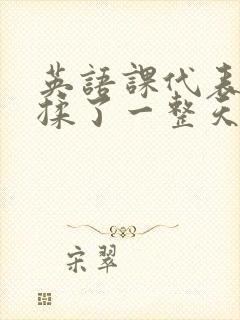 英語課代表
揉了一整天
宋翠